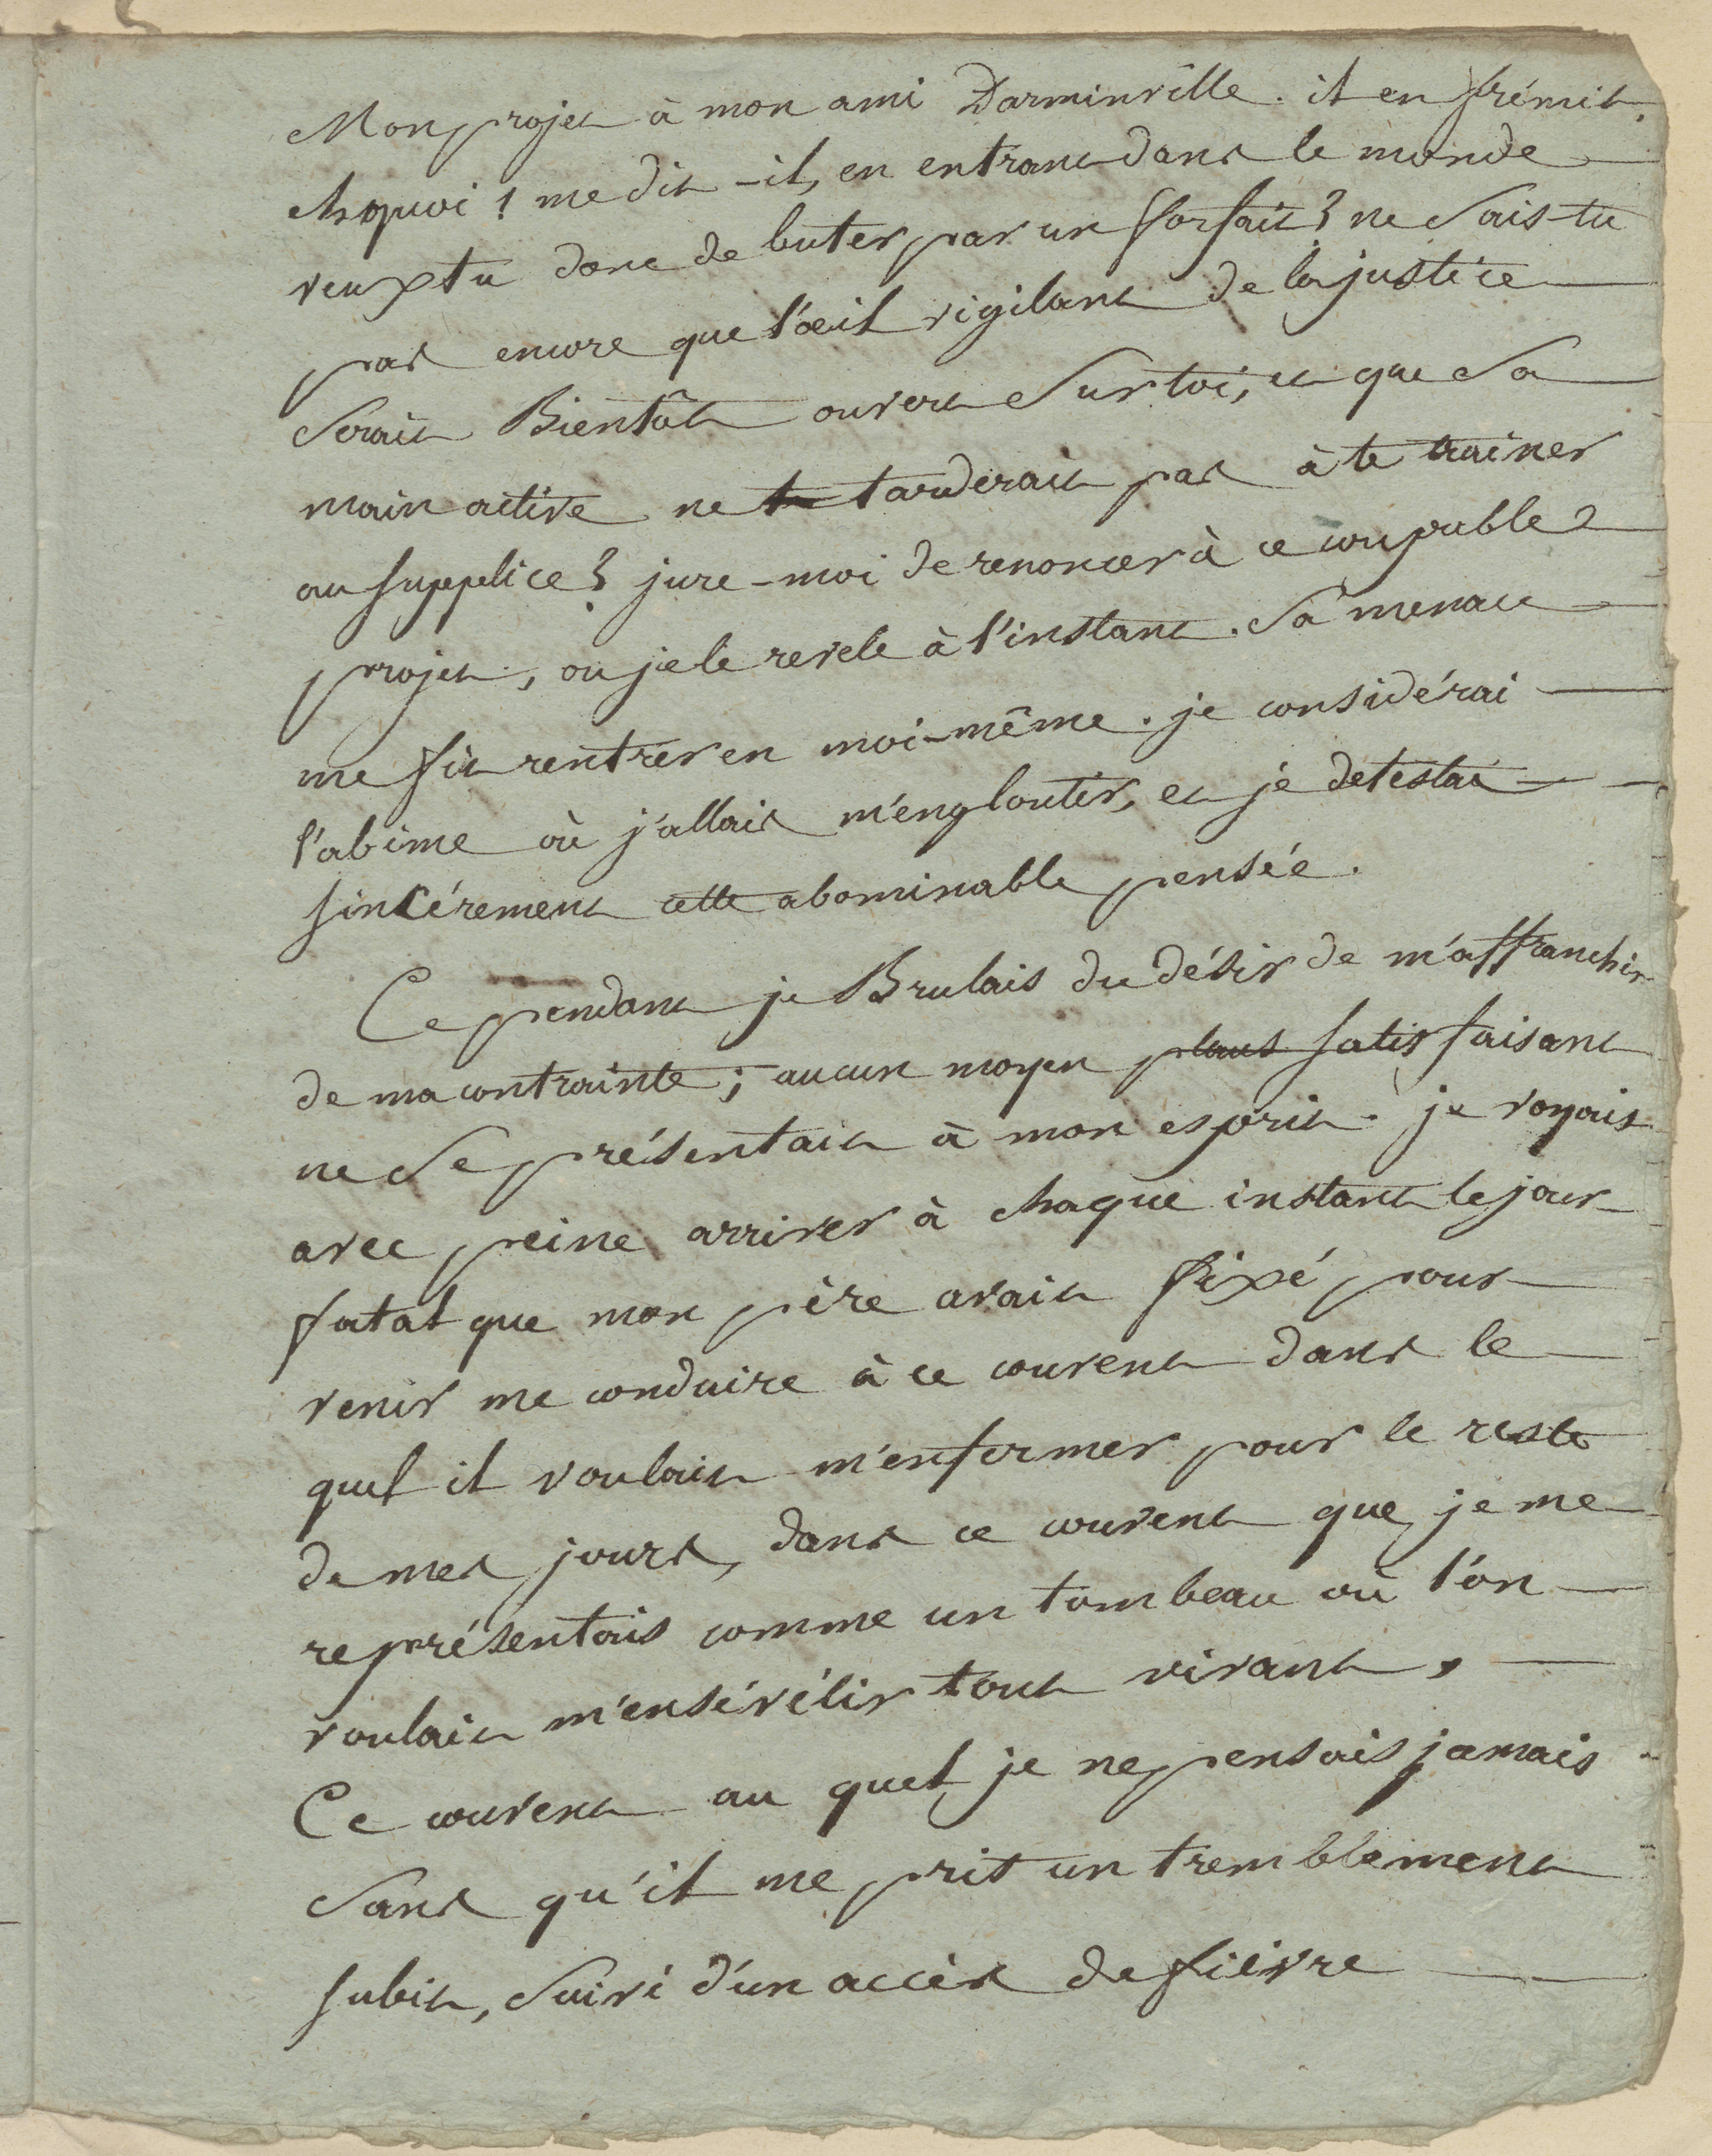 Mon projet à mon ami Darminville. il en frémit.
ah quoi ! me dit-il, en entrant dans le monde
veux tu donc de buter par un forfait ? ne sais-tu
pas encore que l'œil vigilant de la justice
serait Bientôt ouvert sur toi, et que sa
main active ne tarderait pas à te trainer
au supplice ? jure-moi de renoncer à ce coupable
projet, ou je le revele à l'instant. sa menace
me fit rentrer en moi-même. je considérai
l'abime où j'allais m'engloutir, et je detestai
sincérement cette abominable pensée.
Cependant je Brulais du désir de m'affranchir
de ma contrainte ; aucun moyen plaus satisfaisant
ne se présentait à mon esprit. je voyais
avec peine arriver à chaque instant le jour
fatal que mon père avait fixé pour
venir me conduire à ce couvent dans le
quel il voulait m'enfermer pour le reste
de mes jours, dans ce couvent que je me
représentois comme un tombeau où l'on
voulait m'ensévélir tout vivant,
Ce couvent au quel je ne pensois jamais
sans qu'il me prit un tremblement
subit, suivi d'un accès de fièvre